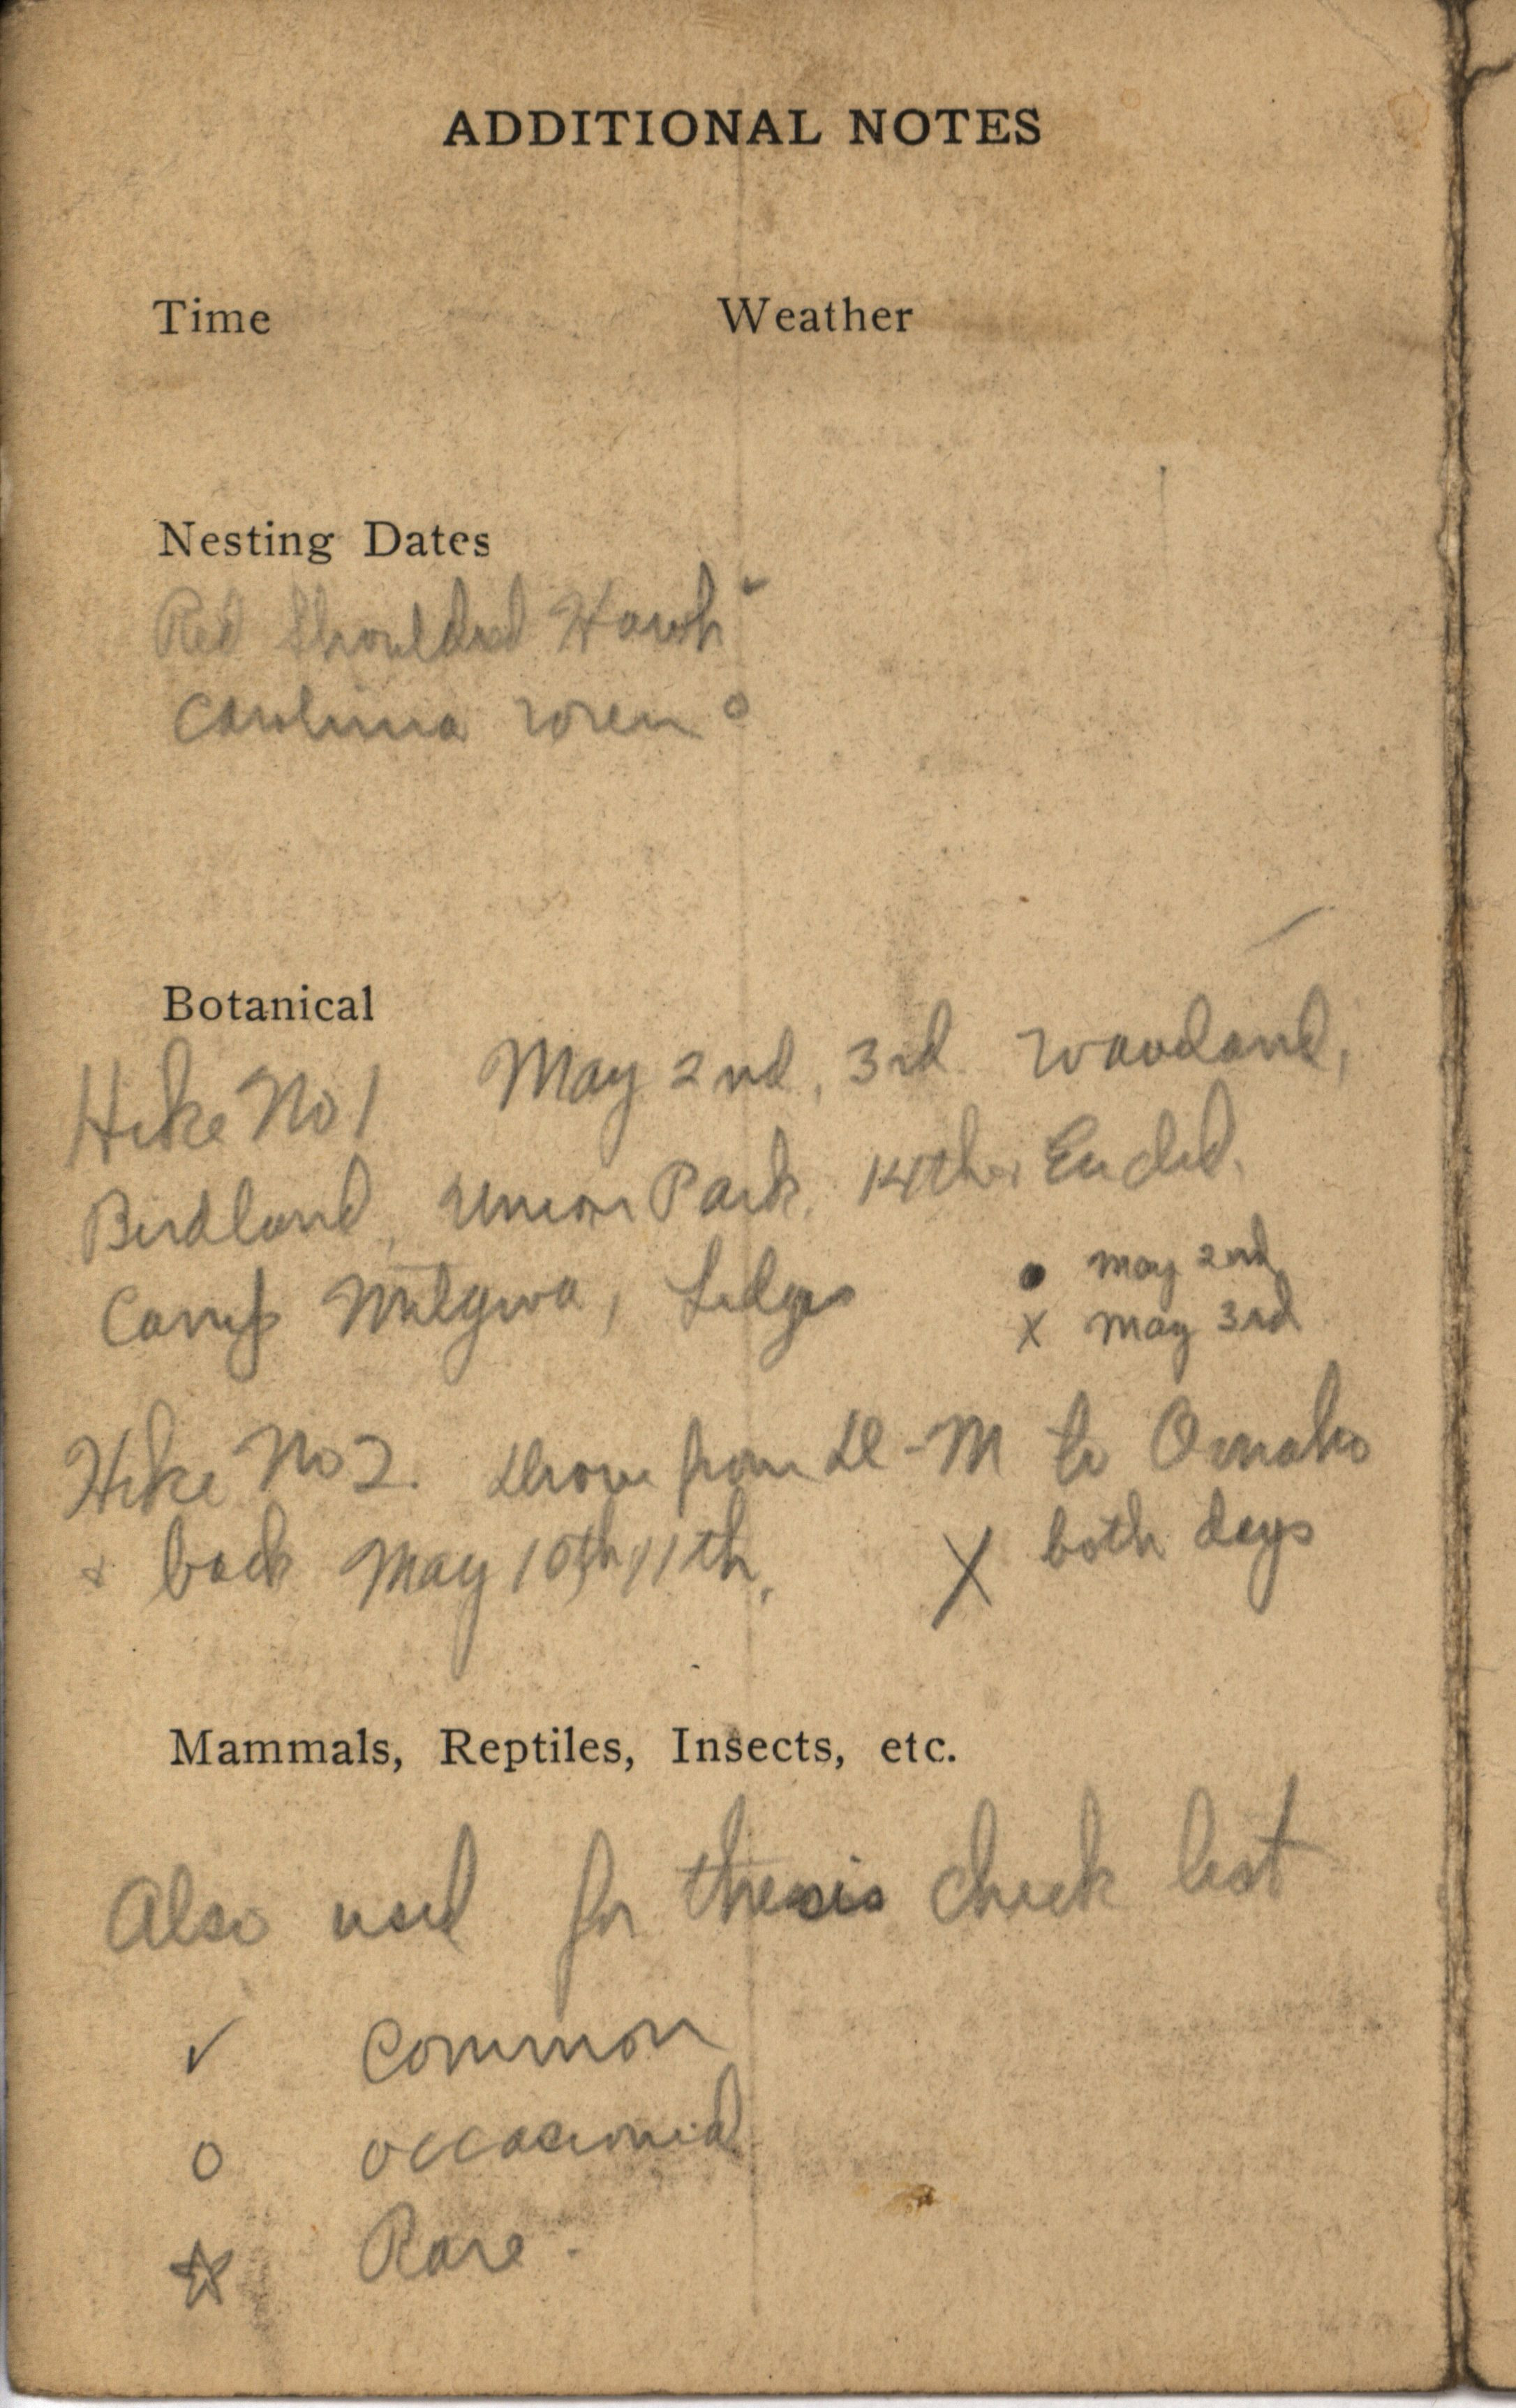 ADDITIONAL NOTES
Time Weather
Nesting Dates
Red Shouldred Hawk ✓
Carolina wren o
Botanical
Hike No 1 May 2nd, 3rd Woodland,
Birdland, Union Park, 14th & Euclid,
Camp Mitigwa, Ledges
● May 2nd
x May 3rd
Hike No 2. Drove from D-M to Omaha
& back May 10th, 11th, X both days
Mammals, Reptiles, Insects, etc.
Also used for thesis check list
✓ Common
o occasional
☆ Rare -